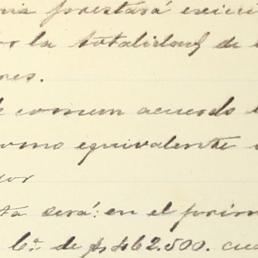 prestará
por la totalidad de l
ores.
de comun acuerdo
como equivalente
por
ta será: en el prim
6º. de $ 462.500. cu